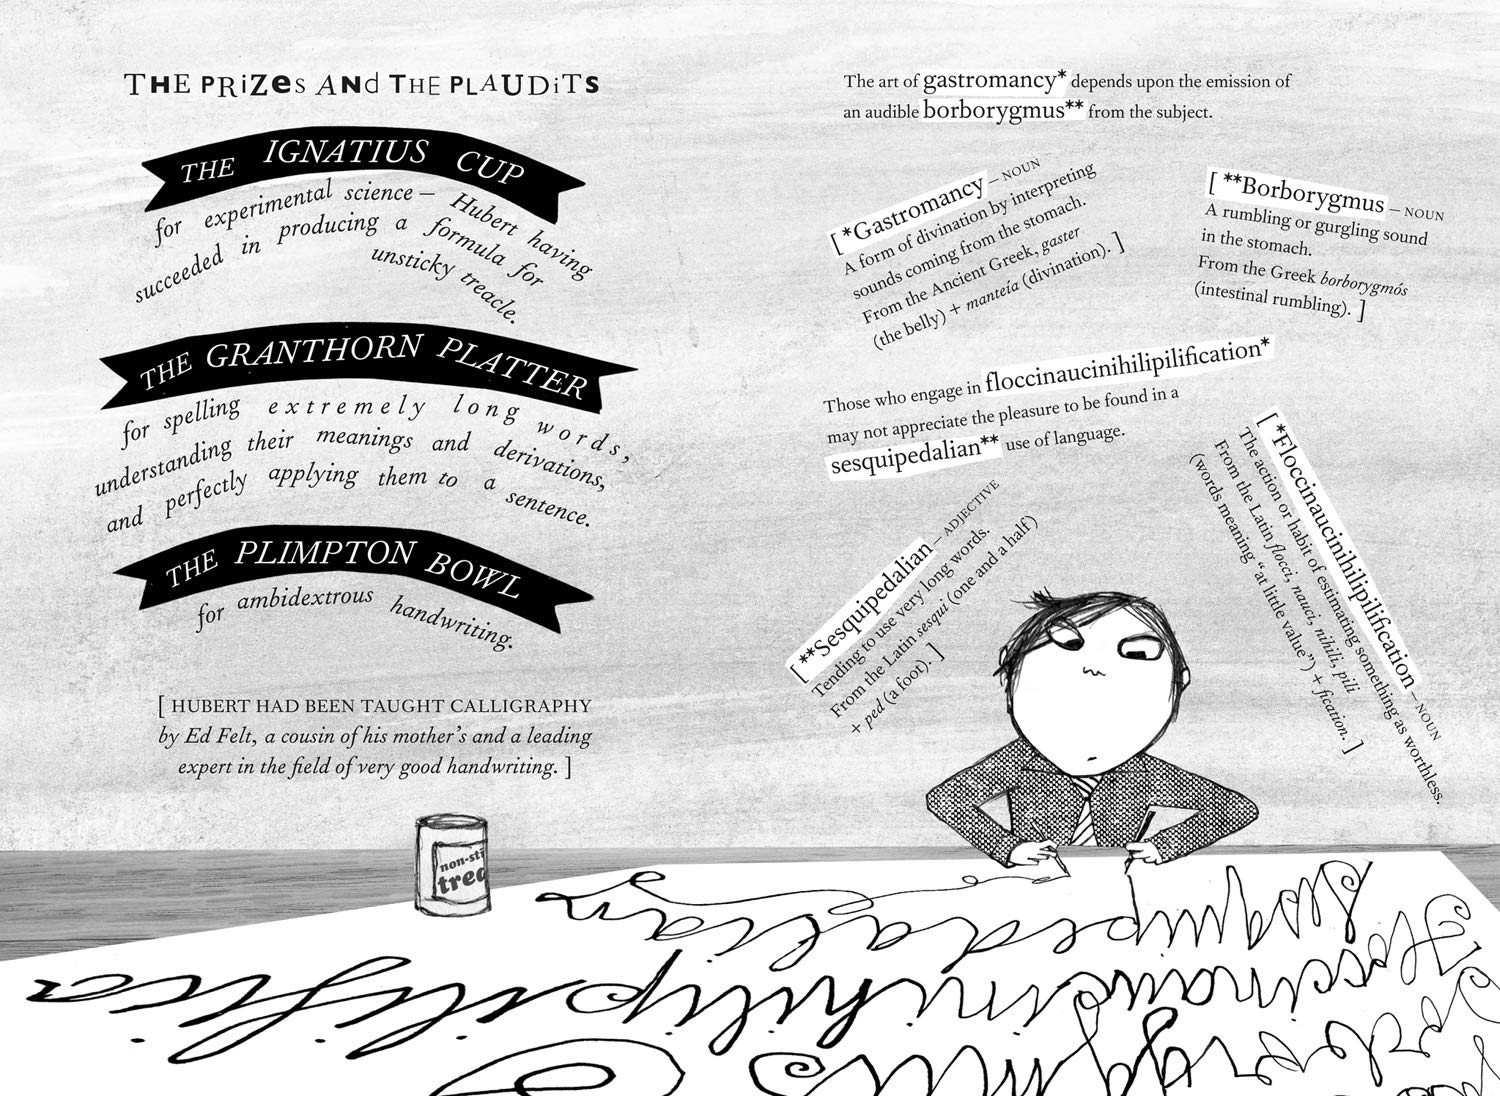 THE PRiZes AND THE PLAUDiTS
THE IGNATIUS CUP
for experimental science – Hubert having
succeeded in producing a formula for
unsticky treacle.
THE GRANTHORN PLATTER
for spelling extremely long words,
understanding their meanings and derivations,
and perfectly applying them to a sentence.
THE PLIMPTON BOWL
for ambidextrous handwriting.
[ HUBERT HAD BEEN TAUGHT CALLIGRAPHY
by Ed Felt, a cousin of his mother's and a leading
expert in the field of very good handwriting. ]
The art of gastromancy* depends upon the emission of
an audible borborygmus** from the subject.
[ *Gastromancy – NOUN
A form of divination by interpreting
sounds coming from the stomach.
From the Ancient Greek, gaster
(the belly) + manteía (divination). ]
[ **Borborygmus – NOUN
A rumbling or gurgling sound
in the stomach.
From the Greek borborygmós
(intestinal rumbling). ]
Those who engage in floccinaucinihilipilification*
may not appreciate the pleasure to be found in a
sesquipedalian** use of language.
[ **Sesquipedalian – ADJECTIVE
Tending to use very long words.
From the Latin sesqui (one and a half)
+ ped (a foot). ]
[ *Floccinaucinihilipilification – NOUN
The action or habit of estimating something as worthless.
From the Latin flocci, nauci, nihili, pili
(words meaning “at little value”) + fication. ]
non-sti
trea
Sesquipedalian
Floccinaucinihilipilificatio